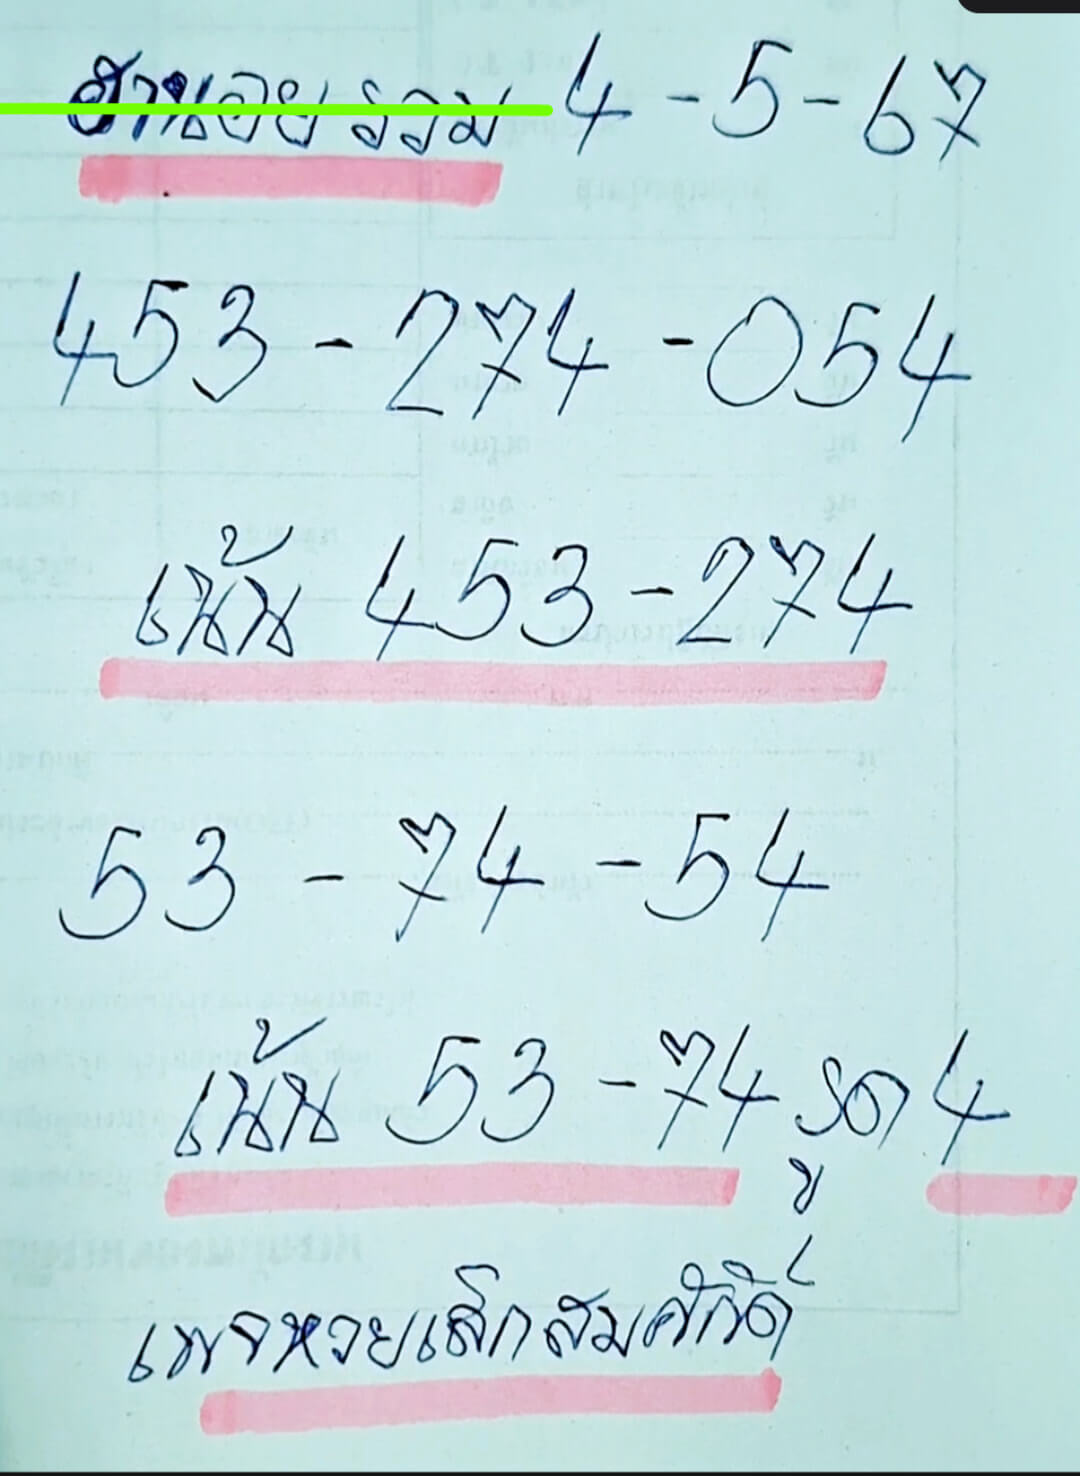 ฮานอย รวม 4-5-67
453-274-054
เน้น 453-274
53-74-54
เน้น 53-74 รูด 4
เพจหวยเลิกสมศักดิ์